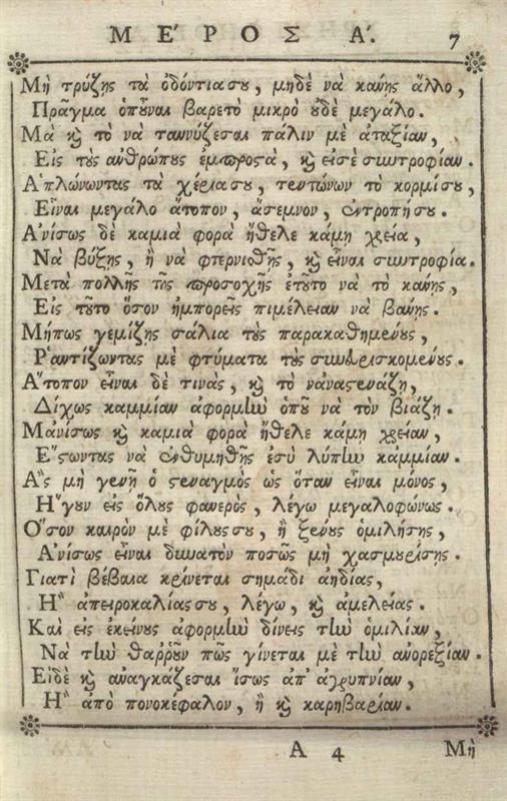 ΜΕ´ΡΟΣ Α´. 7
Μὴ τρύζῃς τὰ ὀδόντιασου, μηδὲ νὰ κάνῃς ἄλλο,
Πρᾶγμα ὁποῦναι βαρετὸ μικρὸ οὐδὲ μεγάλο.
Μὰ καὶ τὸ νὰ ταννύζεσαι πάλιν μὲ ἀταξίαν,
Εἰς τοὺς ἀνθρώπους ἐμπροστὰ, καὶ εἰσὲ συντροφίαν.
Α῾πλώνωντας τὰ χέριασου, τεντώνων τὸ κορμίσου,
Εἶναι μεγάλο ἄτοπον, ἄσεμνον, ἐντροπήσου.
Α᾿νίσως δὲ καμιὰ φορὰ ἤθελε κάμῃ χρεία,
Νὰ βύξῃς, ἢ νὰ φτερνισθῇς, καὶ εἶναι συντροφία.
Μετὰ πολλῆς τῆς προσοχῆς ἐτοῦτο νὰ τὸ κάνῃς,
Εἰς τοῦτο ὅσον ἠμπορεῖς πιμέλειαν νὰ βάνῃς.
Μήπως γεμίζῃς σάλια τοὺς παρακαθημένους,
Ῥαντίζωντας μὲ φτύματα τοὺς συνευρισκομένους.
Α῎τοπον εἶναι δὲ τινὰς, καὶ τὸ νἀναστενάζῃ,
Δίχως καμμίαν ἀφορμὴν ὁποῦ νὰ τὸν βιάζῃ.
Μἀνίσως καὶ καμιὰ φορὰ ἤθελε κάμῃ χρείαν,
Ε῎στωντας νὰ ἐνθυμηθῇς ἐσὺ λύπην κάμμίαν.
Α῍ς μὴ γενῇ ὁ στεναγμὸς ὡς ὅταν εἶναι μόνος,
Η῎γουν εἰς ὅλους φανερὸς, λέγω μεγαλοφώνως.
Ο῞σον καιρὸν μὲ φίλουςσου, ἢ ξένους ὁμιλήσῃς,
Α᾿νίσως εἶναι δυνατὸν ποσῶς μὴ χασμουρίσῃς.
Γιατὶ βέβαια κρίνεται σημάδι ἀηδίας,
Η῍ ἀπειροκαλίαςσου, λέγω, καὶ ἀμελείας.
Καὶ εἰς ἐκείνους ἀφορμὴν δίνεις τὴν ὁμιλίαν,
Νὰ τὴν θαῤῥοῦν πῶς γίνεται μὲ τὴν ἀνορεξίαν.
Εἰδὲ καὶ ἀναγκάζεσαι ἴσως ἀπ᾿ ἀγρυπνίαν,
Η῍ ἀπὸ πονοκέφαλον, ἢ καὶ καρηβαρίαν.
Α 4 Μὴ